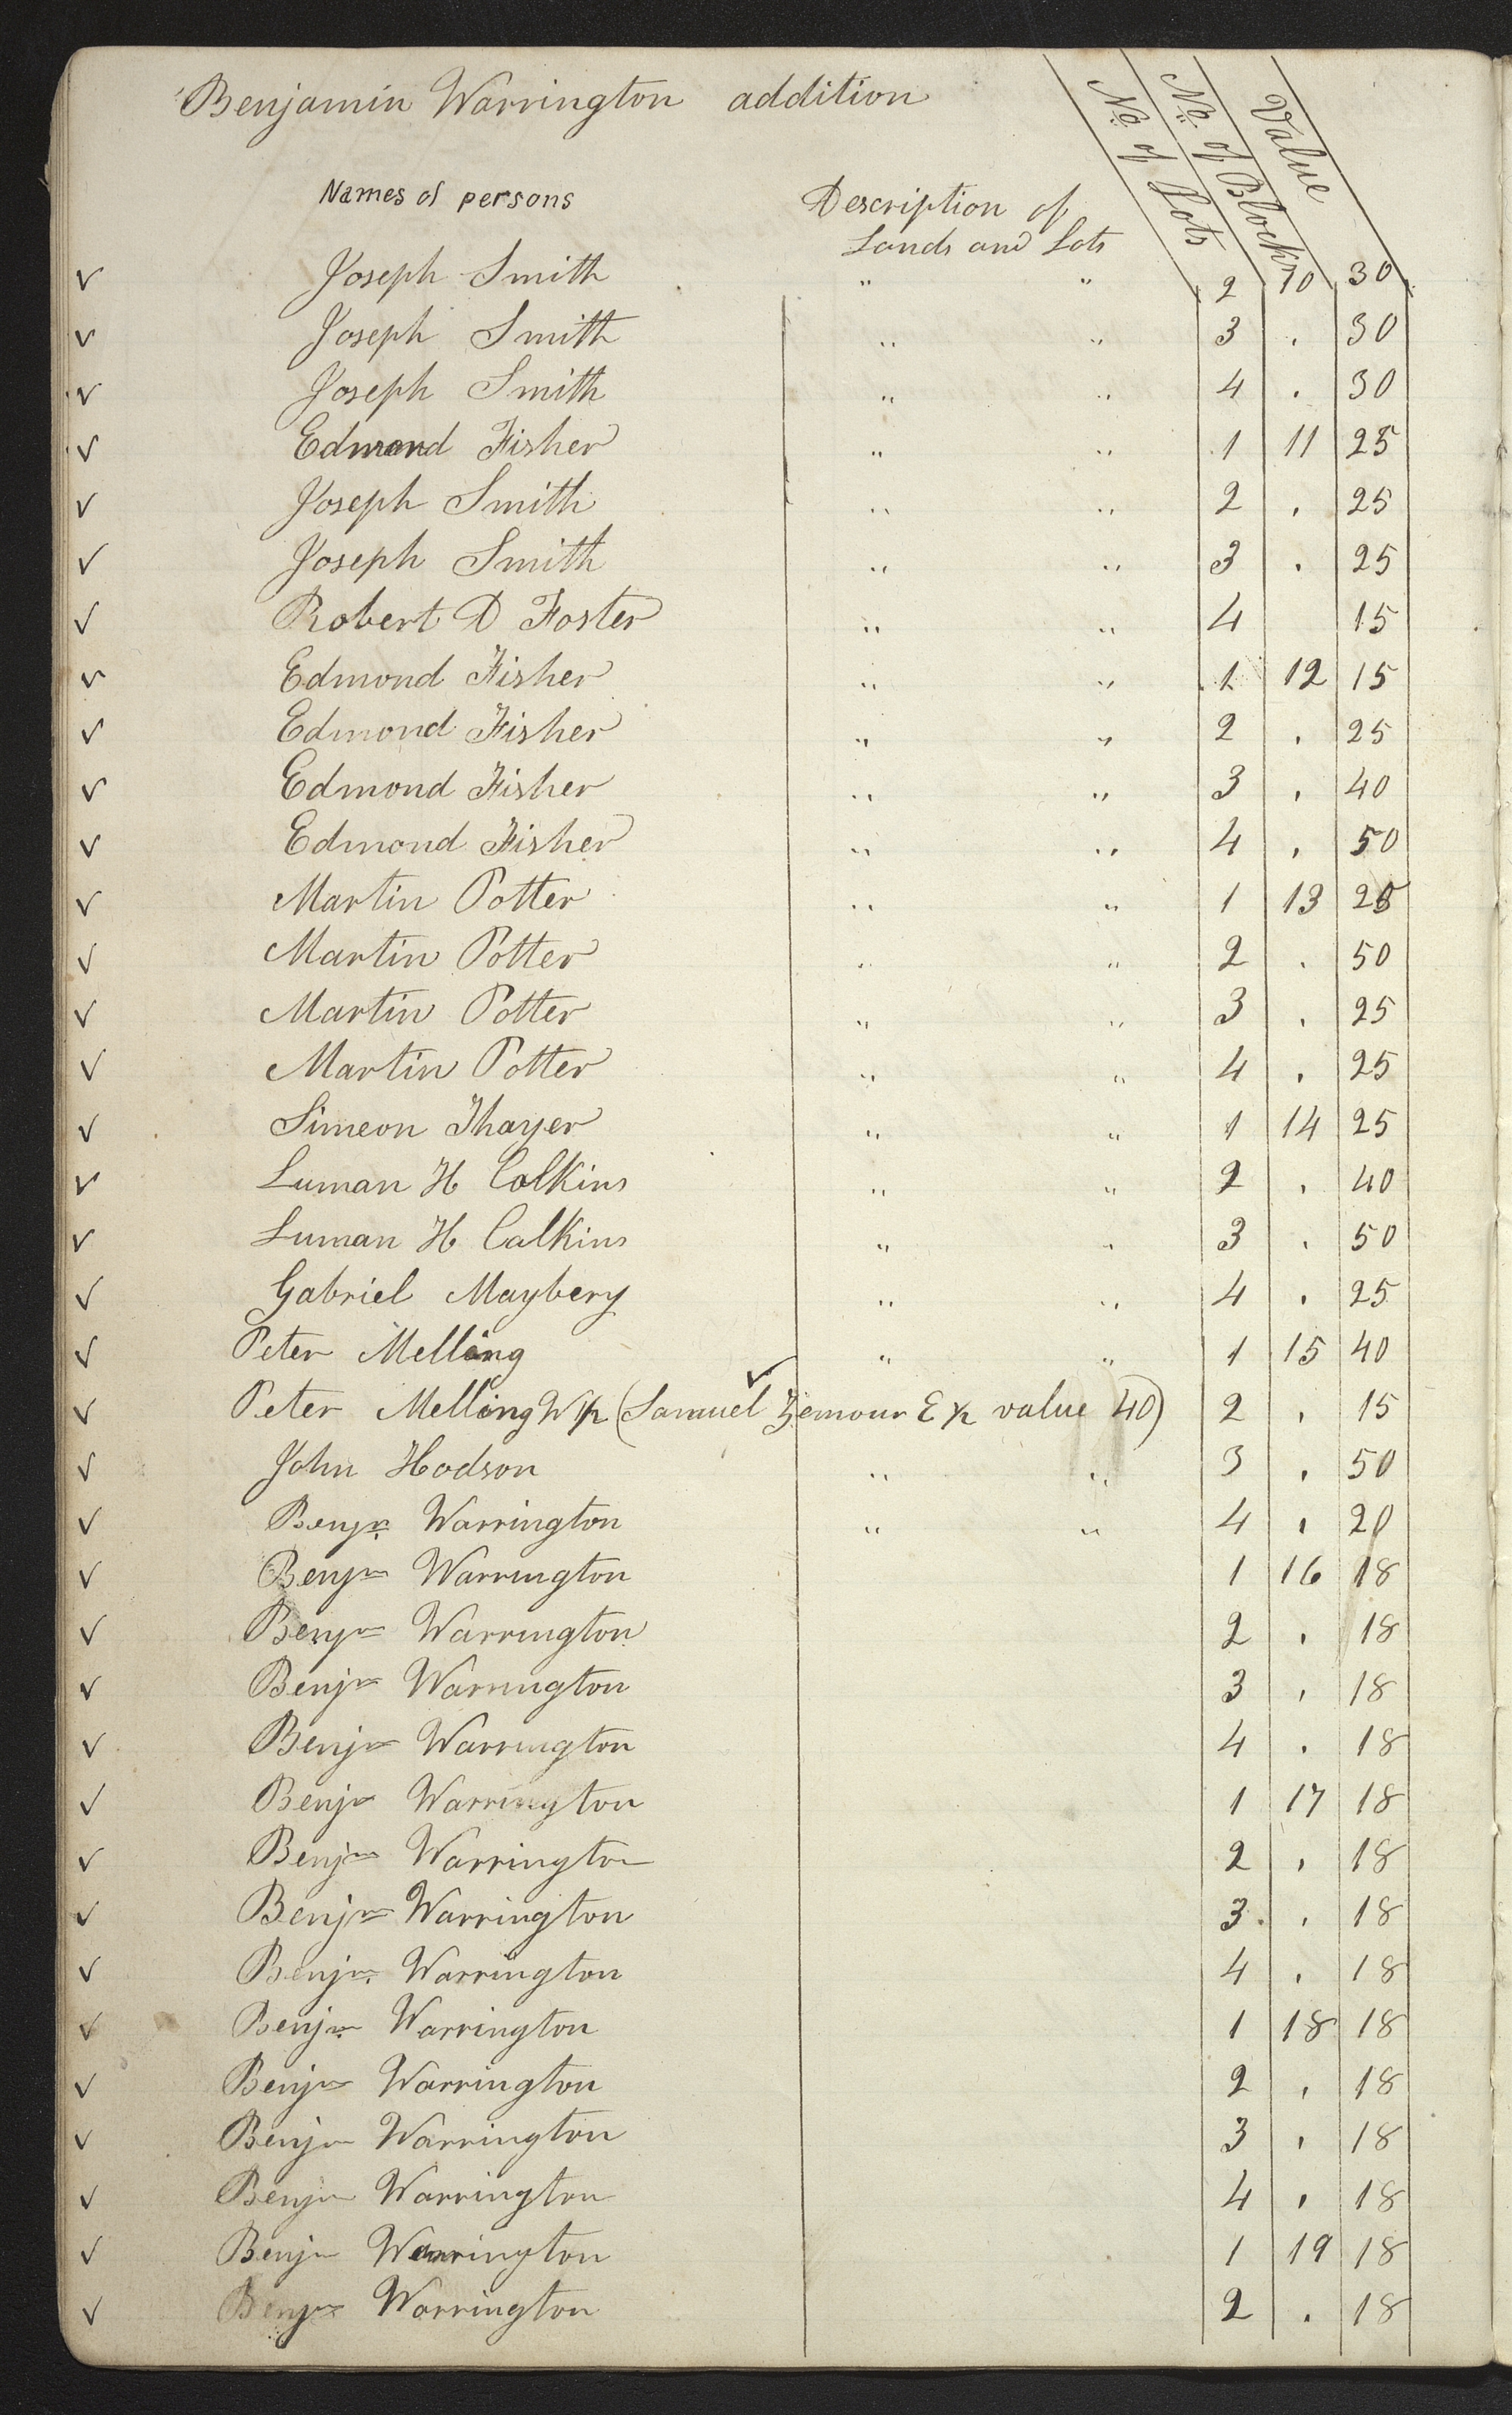 Benjamin Warrington addition
Names of persons Description of Lands and Lots No. of Lots No. of Blocks Value
✓ Joseph Smith " " 2 10 30
✓ Joseph Smith " " 3 . 30
✓ Joseph Smith " " 4 . 30
✓ Edmond Fisher " " 1 11 25
✓ Joseph Smith " " 2 . 25
✓ Joseph Smith " " 3 . 25
✓ Robert D Foster " " 4 15
✓ Edmond Fisher " " 1 12 15
✓ Edmond Fisher " " 2 . 25
✓ Edmond Fisher " " 3 . 40
✓ Edmond Fisher " " 4 . 50
✓ Martin Potter " " 1 13 25
✓ Martin Potter " " 2 . 50
✓ Martin Potter " " 3 . 25
✓ Martin Potter " " 4 . 25
✓ Simeon Thayer " " 1 14 25
✓ Luman H Calkins " " 2 . 40
✓ Luman H Calkins " " 3 . 50
✓ Gabriel Maybery " " 4 . 25
✓ Peter Melling " " 1 15 40
✓ Peter Melling W ½ (Samuel ✓ E ½ value 40) 2 . 15
✓ John Hodson " " 3 . 50
✓ Benjn Warrington " " 4 . 20
✓ Benjn Warrington 1 16 18
✓ Benjn Warrington 2 . 18
✓ Benjn Warrington 3 . 18
✓ Benjn Warrington 4 . 18
✓ Benjn Warrington 1 17 18
✓ Benjn Warrington 2 . 18
✓ Benjn Warrington 3 . 18
✓ Benjn Warrington 4 . 18
✓ Benjn Warrington 1 18 18
✓ Benjn Warrington 2 . 18
✓ Benjn Warrington 3 . 18
✓ Benjn Warrington 4 . 18
✓ Benjn Warrington 1 19 18
✓ Benjn Warrington 2 . 18